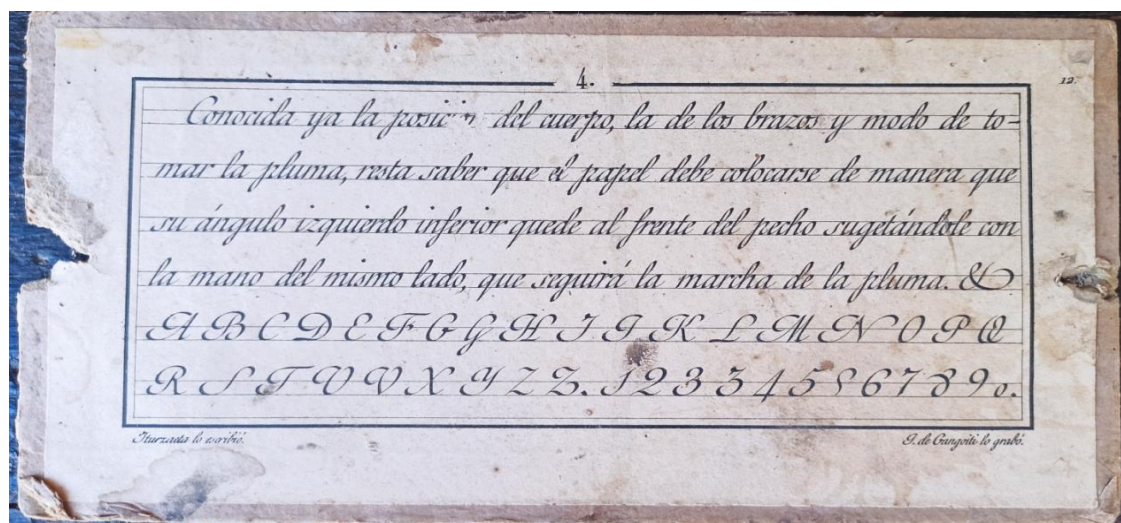 4.
12.
Conocida ya la posic n del cuerpo, la de los brazos y modo de to-
mar la pluma, resta saber que el papel debe colocarse de manera que
su ángulo izquierdo inferior quede al frente del pecho sugetándole con
la mano del mismo lado, que seguirá la marcha de la pluma. &
A B C D E F G G H I J K L M N O P Q
R S T U V X Y Z Z. 1 2 3 3 4 5 5 6 7 8 9 0.
Iturzaeta lo escribió.
G. de Gangoiti lo grabó.